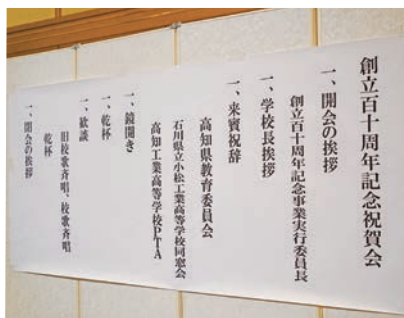 創立百十周年記念祝賀会
一、開会の挨拶
創立百十周年記念事業実行委員長
一、学校長挨拶
一、来賓祝辞
高知県教育委員会
石川県立小松工業高等学校同窓会
高知工業高等学校PTA
一、鏡開き
一、乾杯
一、歓談
旧校歌斉唱、校歌斉唱
乾杯
一、閉会の挨拶